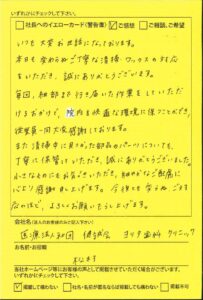 いずれかにチェックして下さい。
□社長へのイエローカード(警告書) ☑ご感想 □ご相談、ご希望
いつも大変お世話になっております。
本日も変わらぬご丁寧な清掃・ワックスの対応
をいただき、誠にありがとうございます。
毎回、細部まで行き届いた作業をしていただ
けるおかげで、院内を快適な環境に保つことができ、
従業員一同大変感謝しております。
また清掃中に見つけた部品のパーツについても、
丁寧に保管いただき、誠にありがとうございました。
小さなものにもお気づきいただき、細やかなご配慮に
心より感謝申し上げます。今後とも
よろしくお願いいたします。
会社名(法人のお客様のみご記入下さい)
医療法人社団 歯科 クリニック
お名前・お役職
当社ホームページ等にお客様の声として掲載させていただく場合がございます。
いずれかにチェックして下さい。
☑掲載して構わない □社名・名前が匿名ならば掲載しても構わない □掲載不可